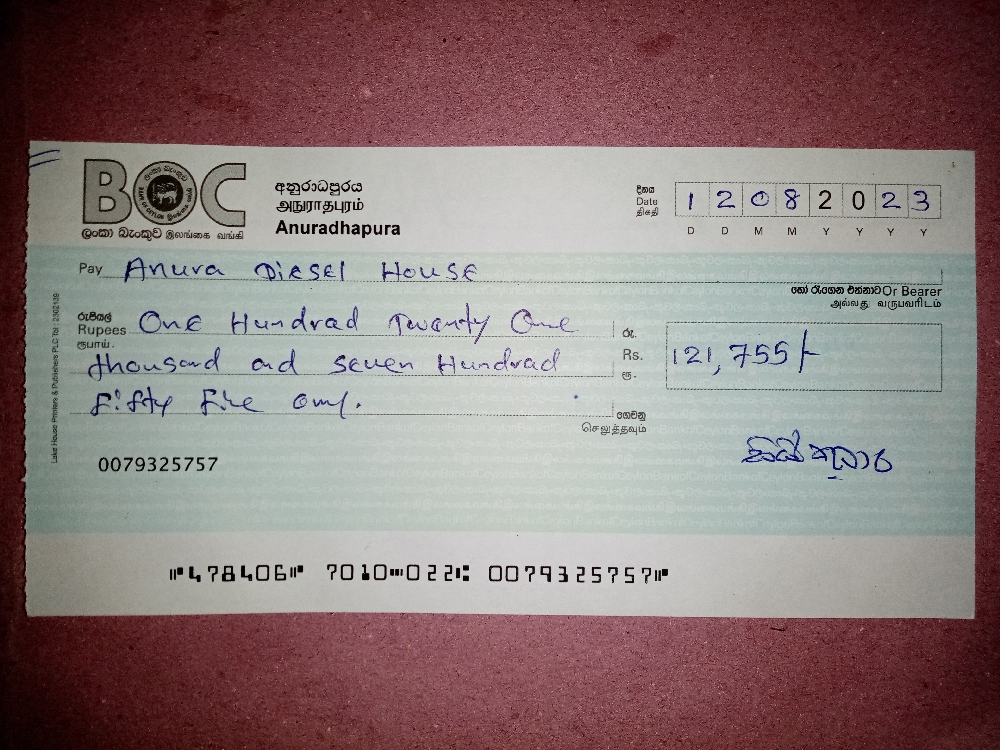 BOC
ලංකා බැංකුව இலங்கை வங்கி
අනුරාධපුරය
அநுராதபுரம்
Anuradhapura
දිනය
Date
திகதி
1 2 0 8 2 0 2 3
D D M M Y Y Y Y
Pay Anura Diesel House
හෝ රැගෙන එන්නාට Or Bearer
அல்லது வருபவரிடம்
රුපියල්
Rupees One Hundrad Twenty One
ரூபாய்.
thousand and seven Hundrad
fifty five only.
රු.
Rs. 121,755/-
ரூ.
ගෙවනු
செலுத்தவும்
Lake House Printers & Publishers PLC
0079325757
478406 7010 022 0079325757